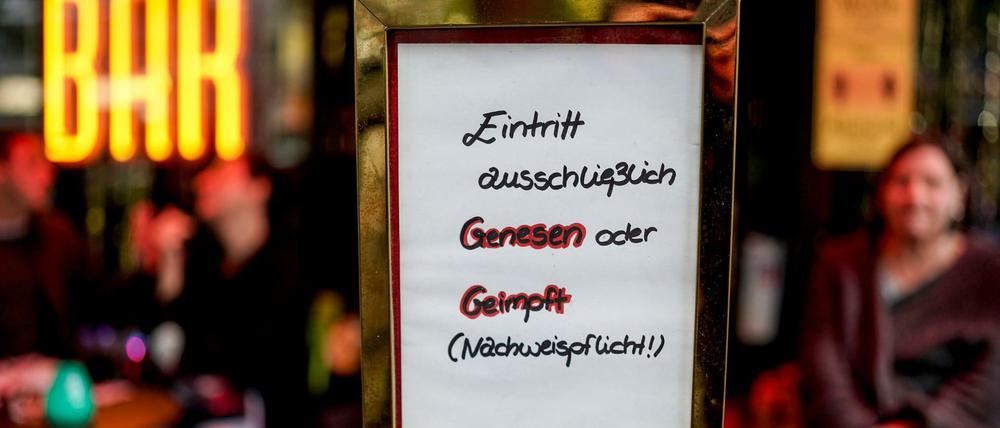 BAR
Eintritt
ausschließlich
Genesen oder
Geimpft
(Nachweispflicht!)